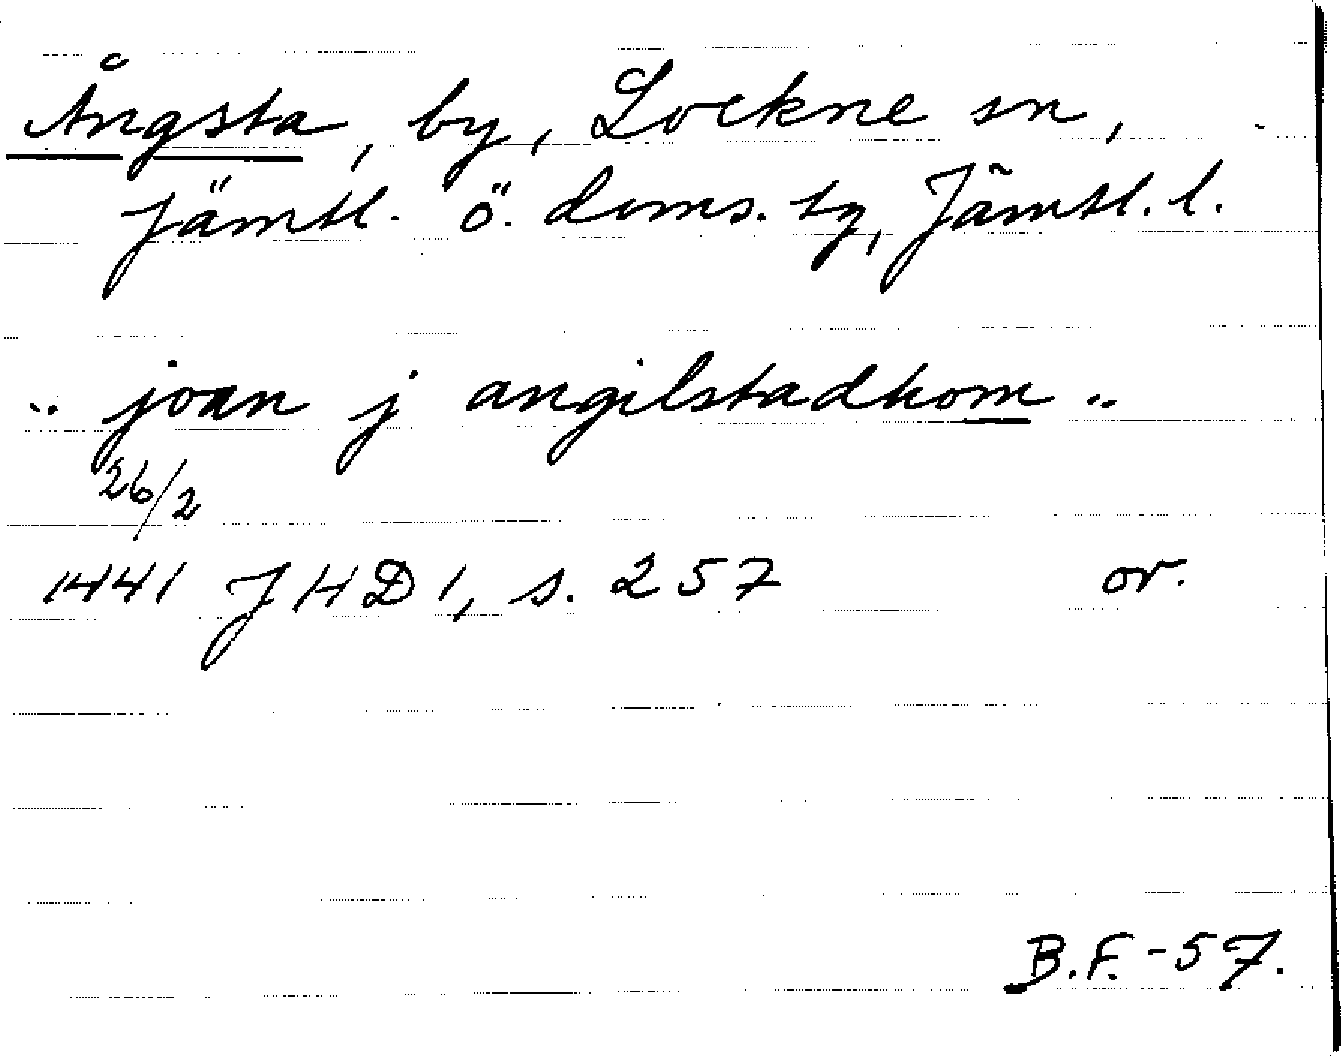 Ångsta, by, Lockne sn,
Jämtl. ö. doms. tg, Jämtl. l.
.. joan j angilstadhom ..
26/2
1441 JHD 1, s. 257 or.
B.F.-57.